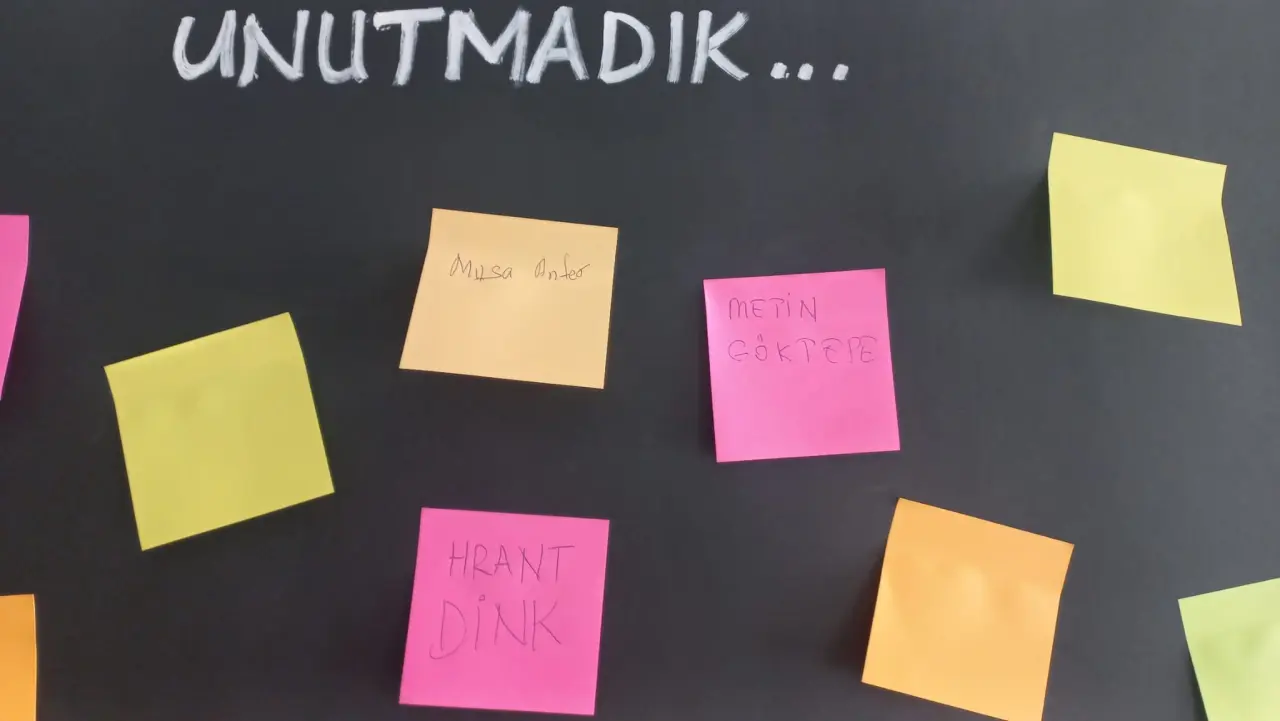 UNUTMADIK...
Musa Anter
METİN
GÖKTEPE
HRANT
DİNK